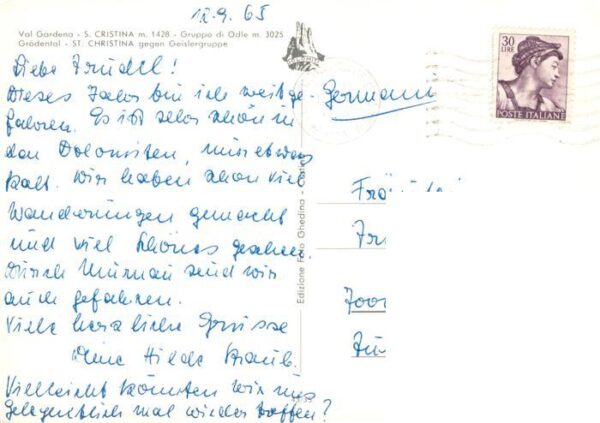 12.9.65
Val Gardena - S. CRISTINA m. 1428 - Gruppo di Odle m. 3025
Grödental - ST. CHRISTINA gegen Geislergruppe
Liebe Trudel!
Dieses Jahr bin ich weit ge-
fahren. Es ist sehr schön in
den Dolomiten, nur etwas
kalt. Wir haben schon viel
Wanderungen gemacht
und viel Schönes gesehen.
Durch Murnau sind wir
auch gefahren.
Viele herzliche Grüsse
Deine Hilde
Vielleicht könnten wir uns
gelegentlich mal wieder treffen?
Edizione Foto Ghedina
30
LIRE
POSTE ITALIANE